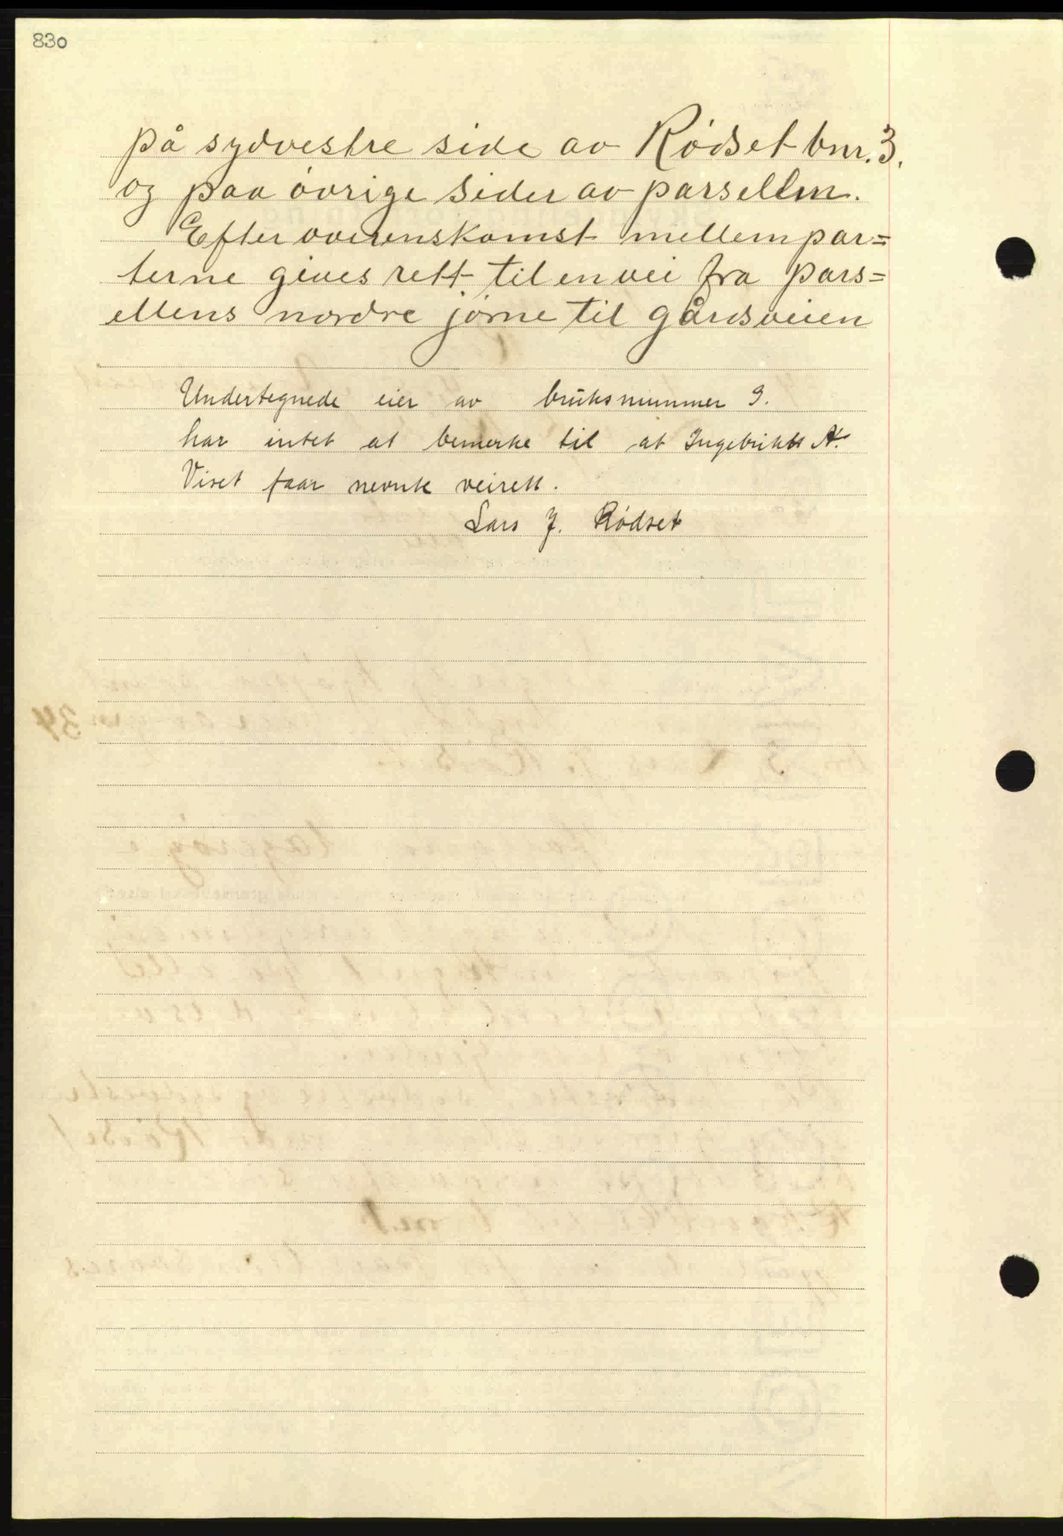 830
på sydvestre side av Rødset bnr. 3.
og paa övrige sider av parsellen.
Efter overenskomst mellem par=
terne gives rett til en vei fra pars=
ellens nordre jörne til gårdsveien
Undertegnede eier av bruksnummer 3.
har intet at bemerke til at Ingebrikt A.
Viset faar nevnte veirett.
Lars J. Rødset